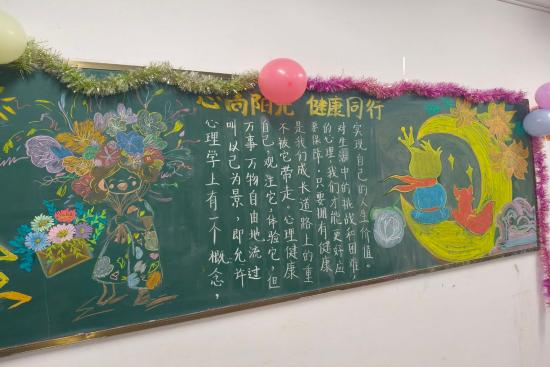 心向阳光 健康同行
心理学上有一个概念，
叫以己为景，即允许
万事万物自由地流过
自己，观注它，体验它，但
不被它带走。心理健康
是我们成长道路上的重
要保障，只要拥有健康
的心理，我们才能更好应
对生活中的挑战和困难，
实现自己的人生价值。